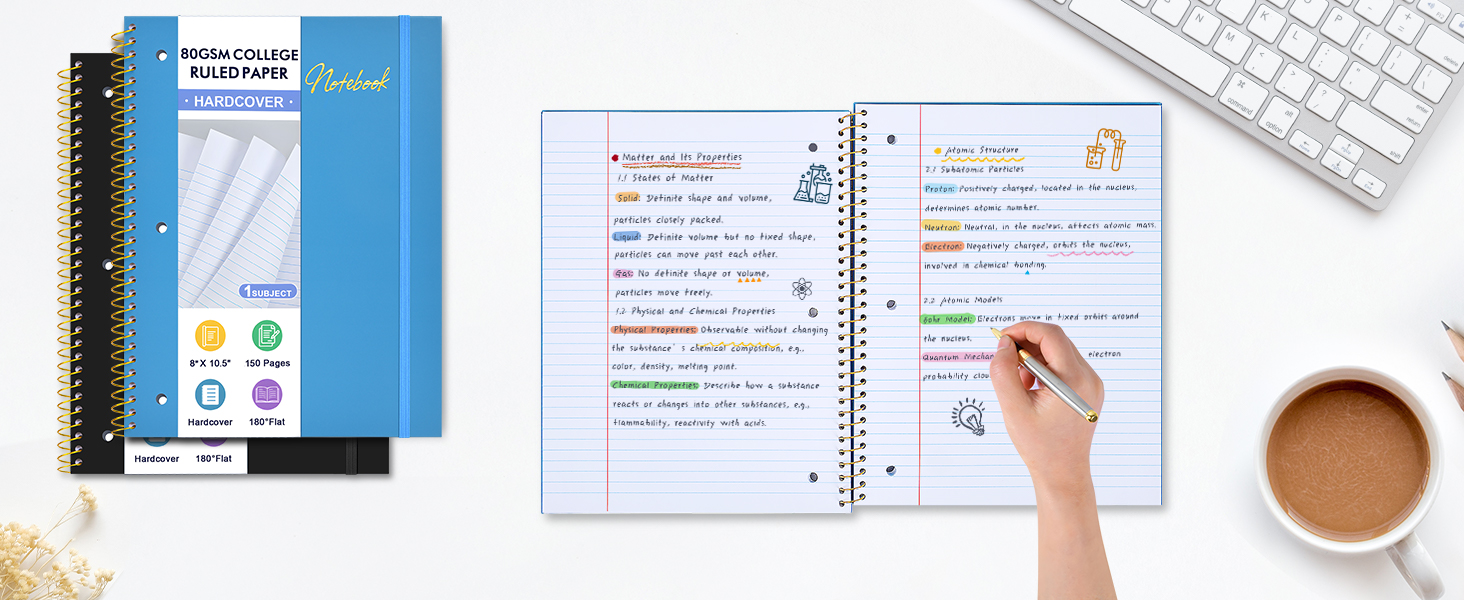 80GSM COLLEGE
RULED PAPER
Notebook
· HARDCOVER ·
1 SUBJECT
8" X 10.5"
150 Pages
Hardcover
180°Flat
Hardcover
180°Flat
Matter and Its Properties
1.1 States of Matter
Solid: Definite shape and volume,
particles closely packed.
Liquid: Definite volume but no fixed shape,
particles can move past each other.
Gas: No definite shape or volume,
particles move freely.
1.2 Physical and Chemical Properties
Physical Properties: Observable without changing
the substance's chemical composition, e.g.,
color, density, melting point.
Chemical Properties: Describe how a substance
reacts or changes into other substances, e.g.,
flammability, reactivity with acids.
Atomic Structure
2.1 Subatomic Particles
Proton: Positively charged, located in the nucleus,
determines atomic number.
Neutron: Neutral, in the nucleus, affects atomic mass.
Electron: Negatively charged, orbits the nucleus,
involved in chemical bonding.
2.2 Atomic Models
Bohr Model: Electrons move in fixed orbits around
the nucleus.
Quantum electron
probability
command
option
alt
shift
enter
return